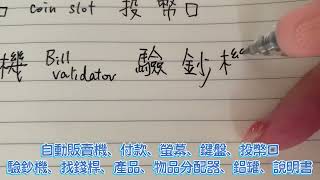 口 coin slot 投幣口
機 Bill validator 驗鈔機
自動販賣機、付款、螢幕、鍵盤、投幣口
驗鈔機、找錢桿、產品、物品分配器、鋁罐、說明書